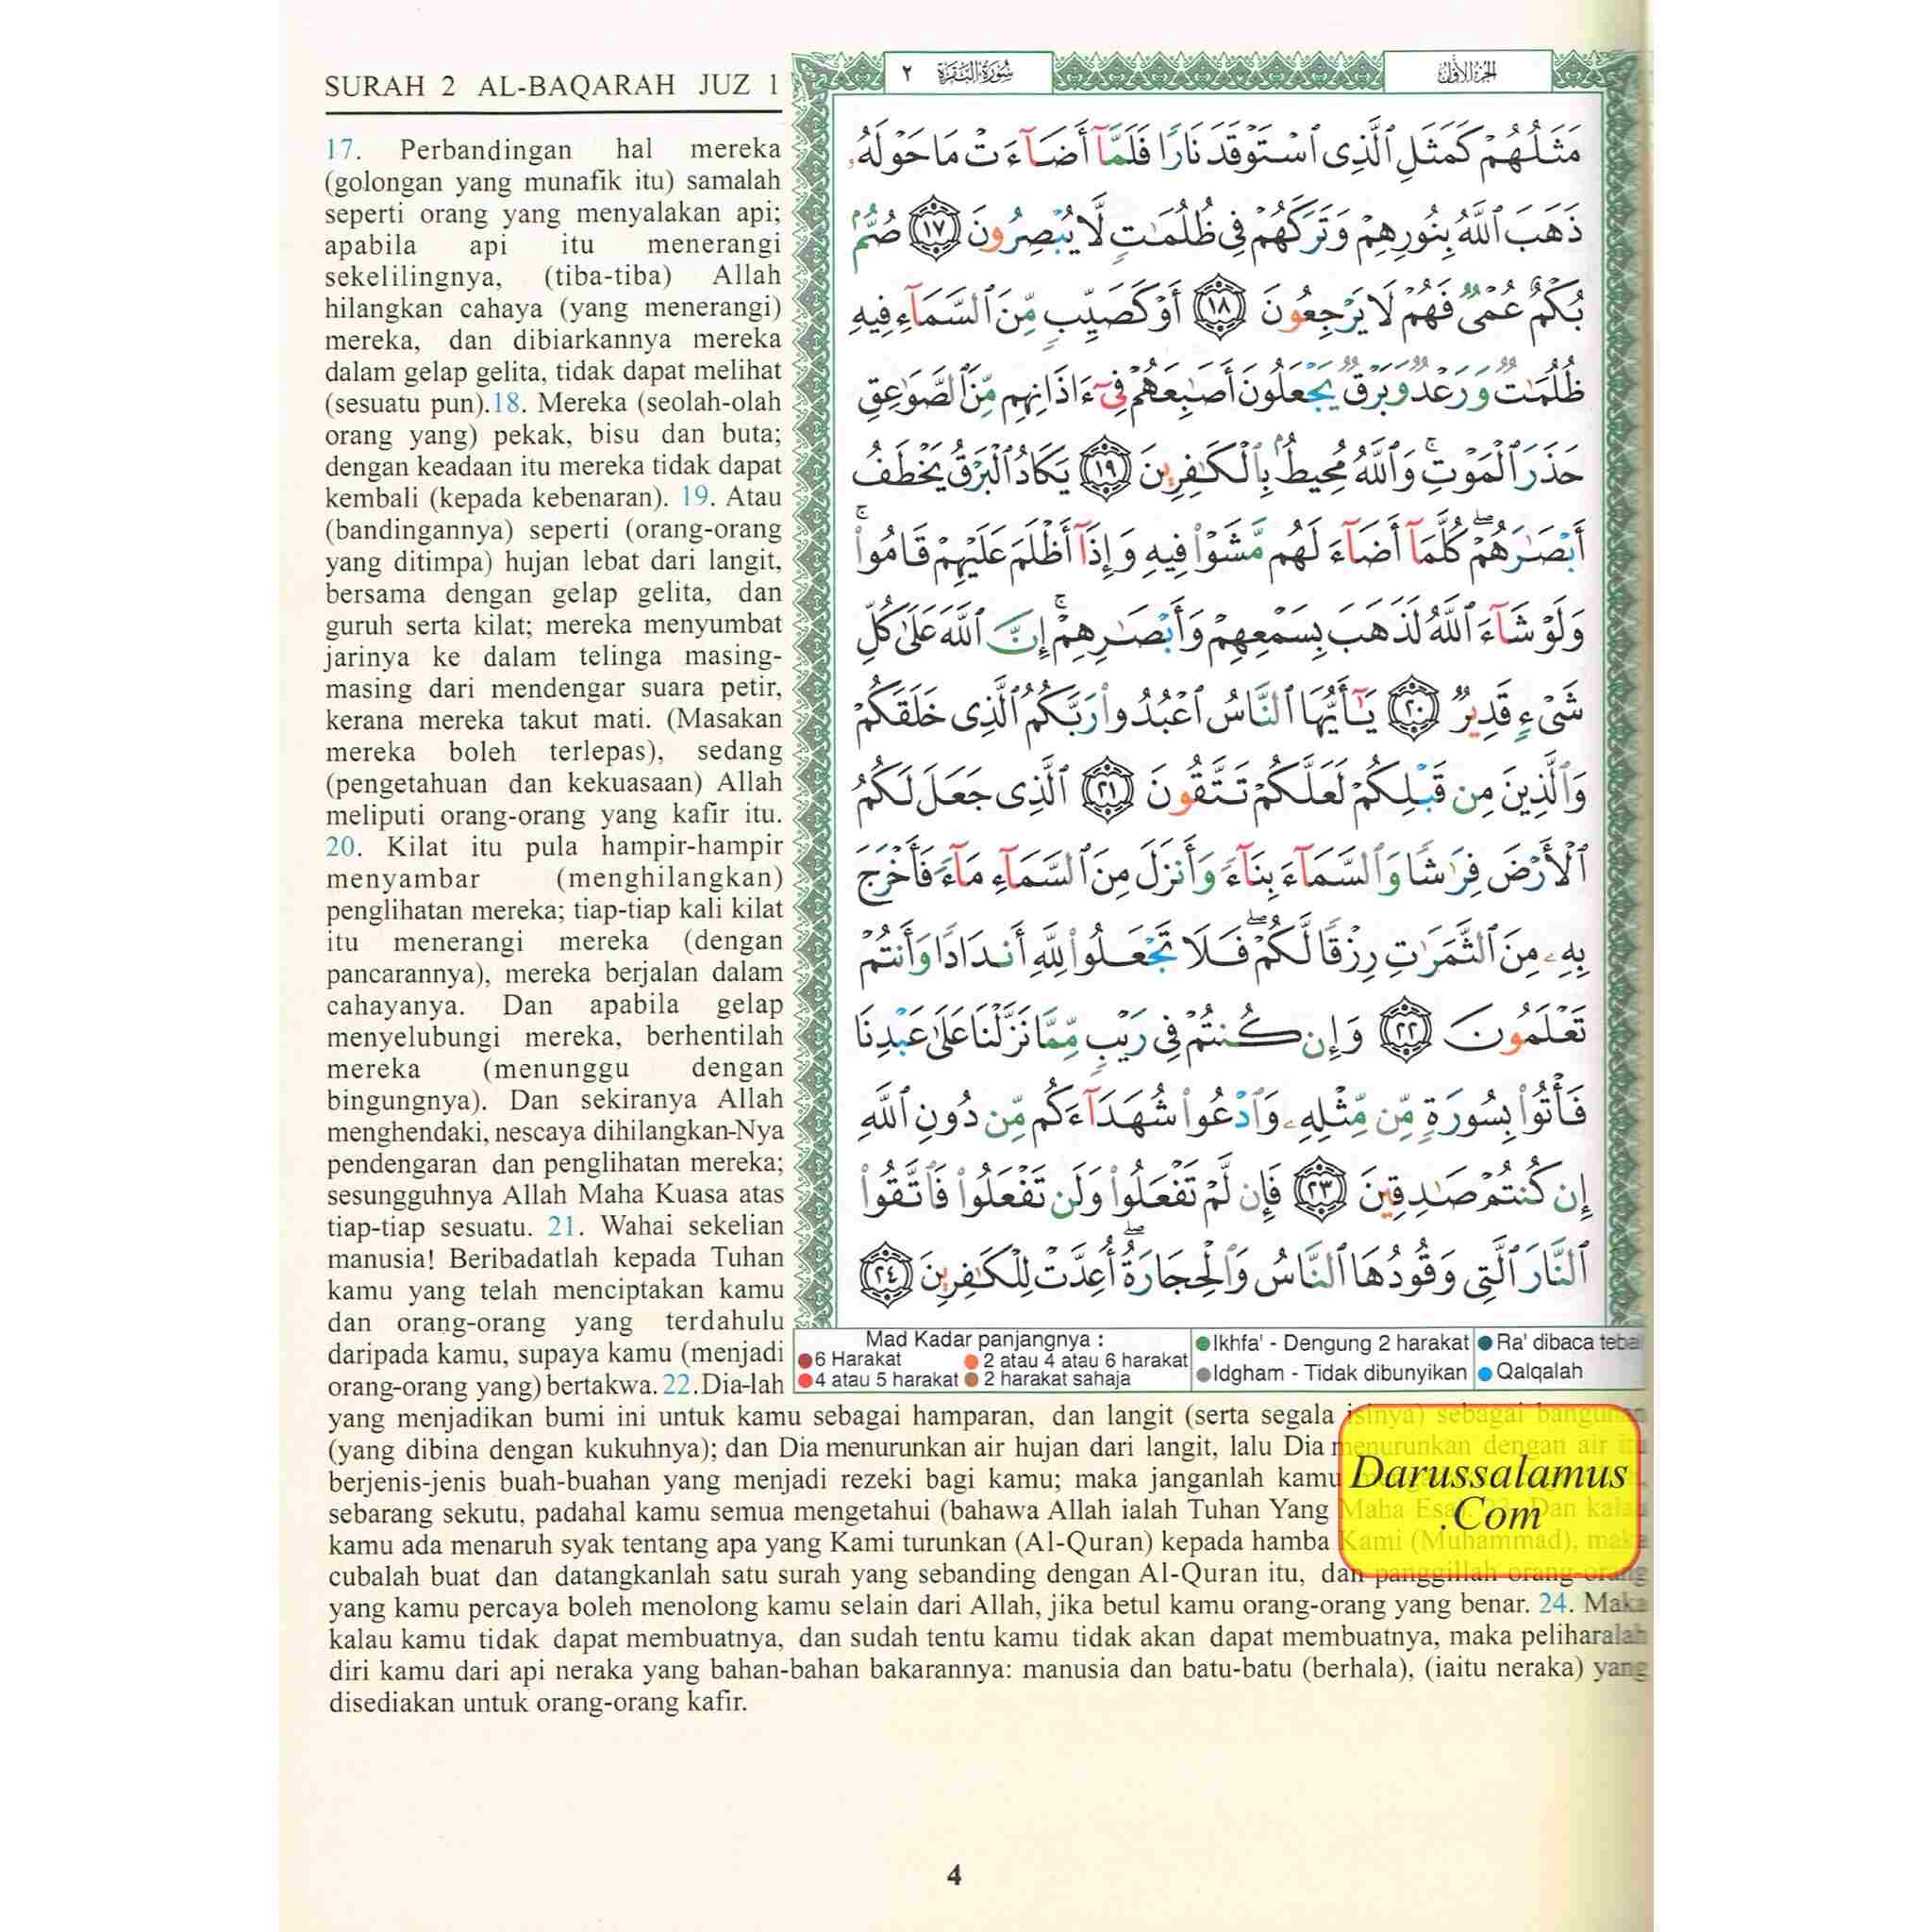 SURAH 2 AL-BAQARAH JUZ 1
17. Perbandingan hal mereka
(golongan yang munafik itu) samalah
seperti orang yang menyalakan api;
apabila api itu menerangi
sekelilingnya, (tiba-tiba) Allah
hilangkan cahaya (yang menerangi)
mereka, dan dibiarkannya mereka
dalam gelap gelita, tidak dapat melihat
(sesuatu pun).18. Mereka (seolah-olah
orang yang) pekak, bisu dan buta;
dengan keadaan itu mereka tidak dapat
kembali (kepada kebenaran). 19. Atau
(bandingannya) seperti (orang-orang
yang ditimpa) hujan lebat dari langit,
bersama dengan gelap gelita, dan
guruh serta kilat; mereka menyumbat
jarinya ke dalam telinga masing-
masing dari mendengar suara petir,
kerana mereka takut mati. (Masakan
mereka boleh terlepas), sedang
(pengetahuan dan kekuasaan) Allah
meliputi orang-orang yang kafir itu.
20. Kilat itu pula hampir-hampir
menyambar (menghilangkan)
penglihatan mereka; tiap-tiap kali kilat
itu menerangi mereka (dengan
pancarannya), mereka berjalan dalam
cahayanya. Dan apabila gelap
menyelubungi mereka, berhentilah
mereka (menunggu dengan
bingungnya). Dan sekiranya Allah
menghendaki, nescaya dihilangkan-Nya
pendengaran dan penglihatan mereka;
sesungguhnya Allah Maha Kuasa atas
tiap-tiap sesuatu. 21. Wahai sekelian
manusia! Beribadatlah kepada Tuhan
kamu yang telah menciptakan kamu
dan orang-orang yang terdahulu
daripada kamu, supaya kamu (menjadi
orang-orang yang) bertakwa. 22.Dia-lah
الجزء الأول
سورة البقرة ٢
مَثَلُهُمْ كَمَثَلِ ٱلَّذِى ٱسْتَوْقَدَ نَارًا فَلَمَّآ أَضَآءَتْ مَا حَوْلَهُۥ
ذَهَبَ ٱللَّهُ بِنُورِهِمْ وَتَرَكَهُمْ فِى ظُلُمَٰتٍ لَّا يُبْصِرُونَ ١٧ صُمٌّۢ
بُكْمٌ عُمْىٌ فَهُمْ لَا يَرْجِعُونَ ١٨ أَوْ كَصَيِّبٍ مِّنَ ٱلسَّمَآءِ فِيهِ
ظُلُمَٰتٌ وَرَعْدٌ وَبَرْقٌ يَجْعَلُونَ أَصَٰبِعَهُمْ فِىٓ ءَاذَانِهِم مِّنَ ٱلصَّوَٰعِقِ
حَذَرَ ٱلْمَوْتِ ۚ وَٱللَّهُ مُحِيطٌۢ بِٱلْكَٰفِرِينَ ١٩ يَكَادُ ٱلْبَرْقُ يَخْطَفُ
أَبْصَٰرَهُمْ ۖ كُلَّمَآ أَضَآءَ لَهُم مَّشَوْا۟ فِيهِ وَإِذَآ أَظْلَمَ عَلَيْهِمْ قَامُوا۟ ۚ
وَلَوْ شَآءَ ٱللَّهُ لَذَهَبَ بِسَمْعِهِمْ وَأَبْصَٰرِهِمْ ۚ إِنَّ ٱللَّهَ عَلَىٰ كُلِّ
شَىْءٍ قَدِيرٌ ٢٠ يَٰٓأَيُّهَا ٱلنَّاسُ ٱعْبُدُوا۟ رَبَّكُمُ ٱلَّذِى خَلَقَكُمْ
وَٱلَّذِينَ مِن قَبْلِكُمْ لَعَلَّكُمْ تَتَّقُونَ ٢١ ٱلَّذِى جَعَلَ لَكُمُ
ٱلْأَرْضَ فِرَٰشًا وَٱلسَّمَآءَ بِنَآءً وَأَنزَلَ مِنَ ٱلسَّمَآءِ مَآءً فَأَخْرَجَ
بِهِۦ مِنَ ٱلثَّمَرَٰتِ رِزْقًا لَّكُمْ ۖ فَلَا تَجْعَلُوا۟ لِلَّهِ أَندَادًا وَأَنتُمْ
تَعْلَمُونَ ٢٢ وَإِن كُنتُمْ فِى رَيْبٍ مِّمَّا نَزَّلْنَا عَلَىٰ عَبْدِنَا
فَأْتُوا۟ بِسُورَةٍ مِّن مِّثْلِهِۦ وَٱدْعُوا۟ شُهَدَآءَكُم مِّن دُونِ ٱللَّهِ
إِن كُنتُمْ صَٰدِقِينَ ٢٣ فَإِن لَّمْ تَفْعَلُوا۟ وَلَن تَفْعَلُوا۟ فَٱتَّقُوا۟
ٱلنَّارَ ٱلَّتِى وَقُودُهَا ٱلنَّاسُ وَٱلْحِجَارَةُ ۖ أُعِدَّتْ لِلْكَٰفِرِينَ ٢٤
Mad Kadar panjangnya :
6 Harakat 2 atau 4 atau 6 harakat
4 atau 5 harakat 2 harakat sahaja
Ikhfa' - Dengung 2 harakat
Idgham - Tidak dibunyikan
Ra' dibaca tebal
Qalqalah
yang menjadikan bumi ini untuk kamu sebagai hamparan, dan langit (serta segala isinya) sebagai bangunan
(yang dibina dengan kukuhnya); dan Dia menurunkan air hujan dari langit, lalu Dia menurunkan dengan air itu
berjenis-jenis buah-buahan yang menjadi rezeki bagi kamu; maka janganlah kamu
sebarang sekutu, padahal kamu semua mengetahui (bahawa Allah ialah Tuhan Yang Maha Esa). 23. Dan kalau
kamu ada menaruh syak tentang apa yang Kami turunkan (Al-Quran) kepada hamba Kami (Muhammad), maka
cubalah buat dan datangkanlah satu surah yang sebanding dengan Al-Quran itu, dan panggillah orang-orang
yang kamu percaya boleh menolong kamu selain dari Allah, jika betul kamu orang-orang yang benar. 24. Maka
kalau kamu tidak dapat membuatnya, dan sudah tentu kamu tidak akan dapat membuatnya, maka peliharalah
diri kamu dari api neraka yang bahan-bahan bakarannya: manusia dan batu-batu (berhala), (iaitu neraka) yang
disediakan untuk orang-orang kafir.
Darussalamus
.Com
4